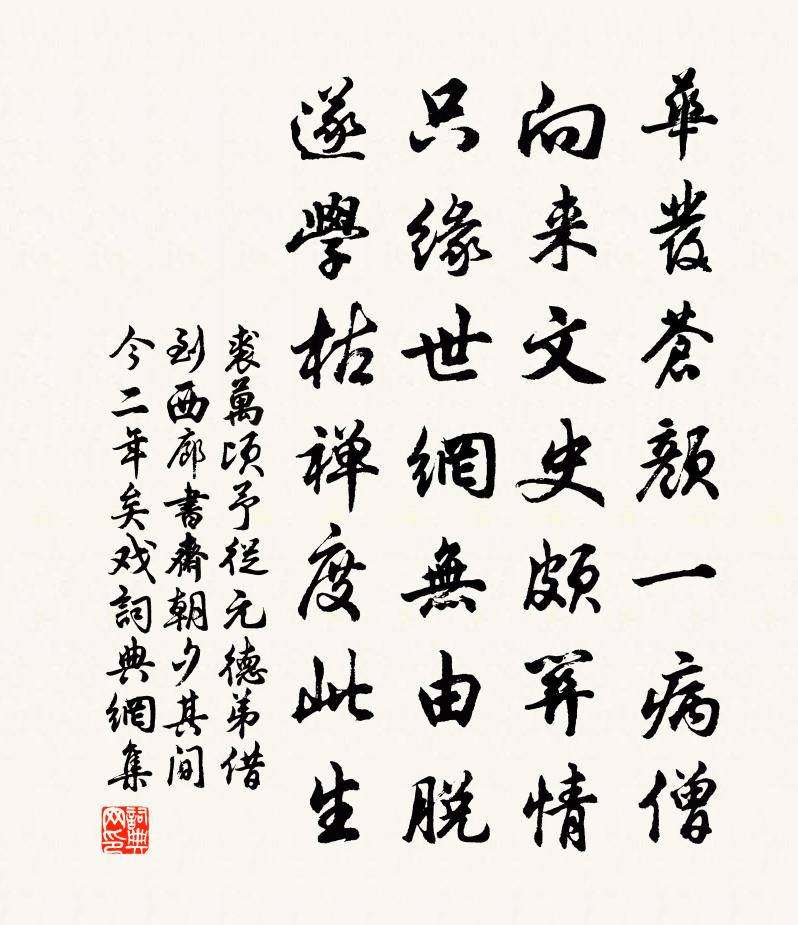 華發蒼顔一病僧
向来文史頗關情
只緣世網無由脱
遂學枯禅度此生
裘萬頃予從元德弟借
到西廊書齋朝夕其间
今二年矣戏詞典網集
詞典网印